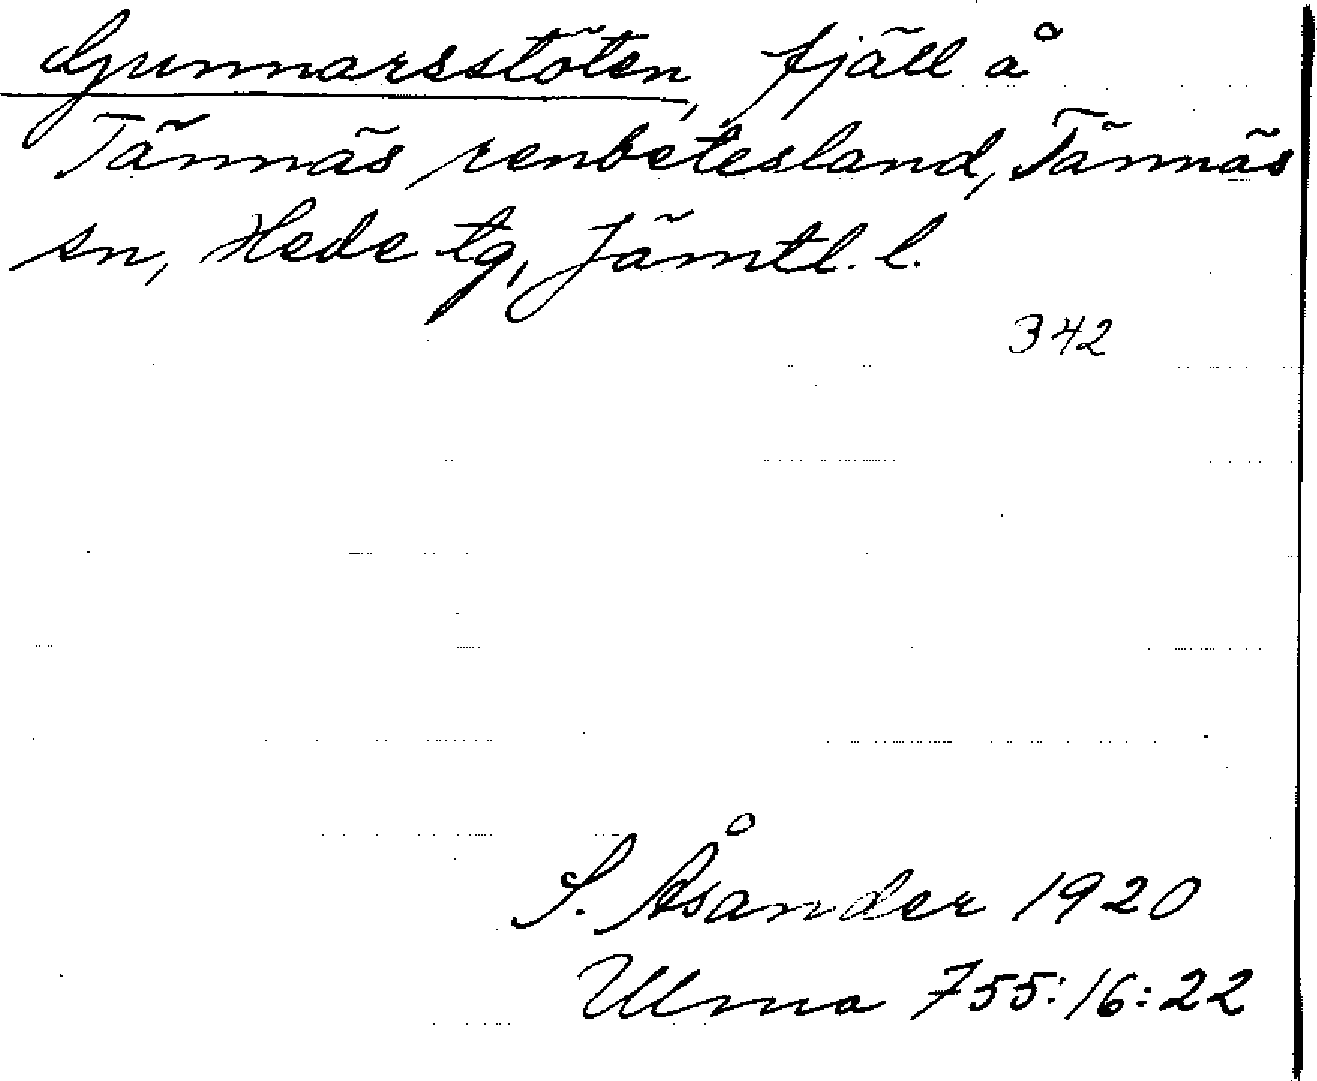 Gunnarsstöten, fjäll å
Tännäs renbetesland, Tännäs
sn, Hede tg, Jämtl. l.
342
S. Åsander 1920
Ulma 755:16:22